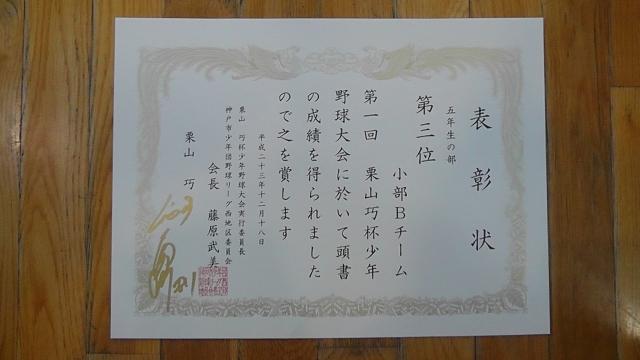 表彰状
五年生の部
第三位
小部Bチーム
第一回 栗山巧杯少年
野球大会に於いて頭書
の成績を得られました
ので之を賞します
平成二十三年十二月十八日
栗山 巧杯少年野球大会実行委員長
神戸市少年団野球リーグ西地区委員会
会長 藤原武美
栗山 巧